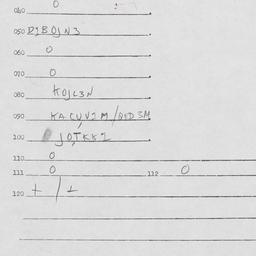 040 0
050 DIBOJN3
060 0
070 0
080 KOJL3N
090 KACUV2M/
100 JOTKKI
110 0
111 0 112 0
120 + / +